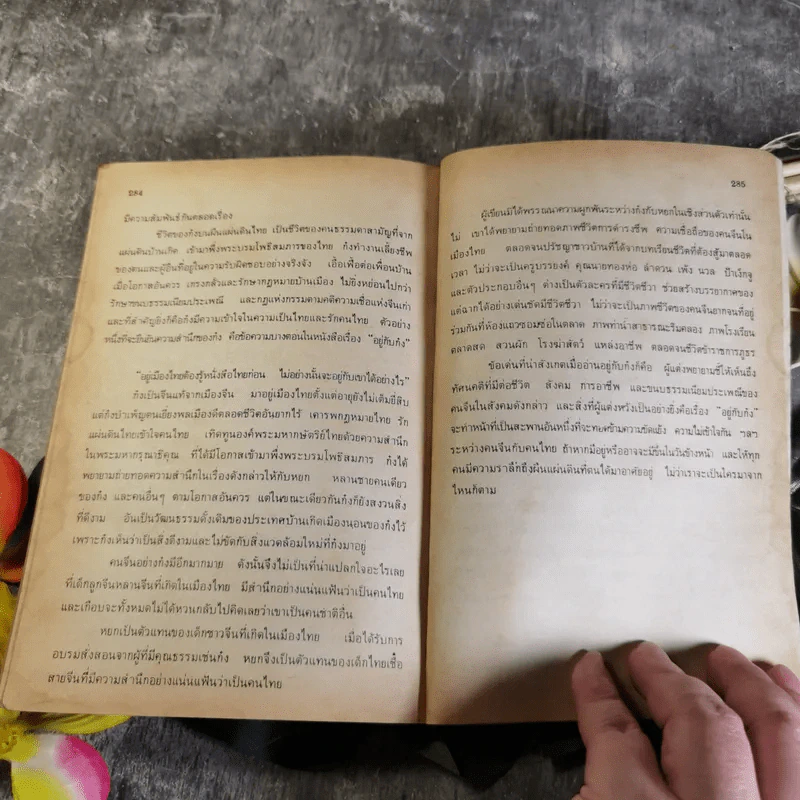 284
มีความสัมพันธ์กันตลอดเรื่อง
ชีวิตของก๋งบนผืนแผ่นดินไทย เป็นชีวิตของคนธรรมดาสามัญที่จาก
แผ่นดินบ้านเกิด เข้ามาพึ่งพระบรมโพธิสมภารของไทย ก๋งทำงานเลี้ยงชีพ
ของตนและผู้อื่นที่อยู่ในความรับผิดชอบอย่างจริงจัง เอื้อเฟื้อต่อเพื่อนบ้าน
เมื่อโอกาสอันควร เกรงกลัวและรักษากฎหมายบ้านเมือง ไม่ยิ่งหย่อนไปกว่า
รักษาขนบธรรมเนียมประเพณี และกฎแห่งกรรมตามคติความเชื่อแห่งจีนเก่า
และที่สำคัญยิ่งก็คือก๋งมีความเข้าใจในความเป็นไทยและรักคนไทย ตัวอย่าง
หนึ่งที่จะยืนยันความสำนึกของก๋ง คือข้อความบางตอนในหนังสือเรื่อง "อยู่กับก๋ง"
"อยู่เมืองไทยต้องรู้หนังสือไทยก่อน ไม่อย่างนั้นจะอยู่กับเขาได้อย่างไร"
ก๋งเป็นจีนแท้จากเมืองจีน มาอยู่เมืองไทยตั้งแต่อายุยังไม่เต็มยี่สิบ
แต่ก๋งบำเพ็ญตนเยี่ยงพลเมืองดีตลอดชีวิตอันยากไร้ เคารพกฎหมายไทย รัก
แผ่นดินไทยเข้าใจคนไทย เทิดทูนองค์พระมหากษัตริย์ไทยด้วยความสำนึก
ในพระมหากรุณาธิคุณ ที่ได้มีโอกาสเข้ามาพึ่งพระบรมโพธิสมภาร ก๋งได้
พยายามถ่ายทอดความสำนึกในเรื่องดังกล่าวให้กับหยก หลานชายคนเดียว
ของก๋ง และคนอื่นๆ ตามโอกาสอันควร แต่ในขณะเดียวกันก๋งก็ยังสงวนสิ่ง
ที่ดีงาม อันเป็นวัฒนธรรมดั้งเดิมของประเทศบ้านเกิดเมืองนอนของก๋งไว้
เพราะก๋งเห็นว่าเป็นสิ่งดีงามและไม่ขัดกับสิ่งแวดล้อมใหม่ที่ก๋งมาอยู่
คนจีนอย่างก๋งมีอีกมากมาย ดังนั้นจึงไม่เป็นที่น่าแปลกใจอะไรเลย
ที่เด็กลูกจีนหลานจีนที่เกิดในเมืองไทย มีสำนึกอย่างแน่นแฟ้นว่าเป็นคนไทย
และเกือบจะทั้งหมดไม่ได้หวนกลับไปคิดเลยว่าเขาเป็นคนชาติอื่น
หยกเป็นตัวแทนของเด็กชาวจีนที่เกิดในเมืองไทย เมื่อได้รับการ
อบรมสั่งสอนจากผู้ที่มีคุณธรรมเช่นก๋ง หยกจึงเป็นตัวแทนของเด็กไทยเชื้อ
สายจีนที่มีความสำนึกอย่างแน่นแฟ้นว่าเป็นคนไทย
285
ผู้เขียนมิได้พรรณนาความผูกพันระหว่างก๋งกับหยกในเชิงส่วนตัวเท่านั้น
ไม่ เขาได้พยายามถ่ายทอดภาพชีวิตการดำรงชีพ ความเชื่อถือของคนจีนใน
เมืองไทย ตลอดจนปรัชญาชาวบ้านที่ได้จากบทเรียนชีวิตที่ต้องสู้มาตลอด
เวลา ไม่ว่าจะเป็นครูบรรยงค์ คุณนายทองห่อ ลำดวน เพ้ง นวล ป้าเง็กจู
และตัวประกอบอื่นๆ ต่างเป็นตัวละครที่มีชีวิตชีวา ช่วยสร้างบรรยากาศของ
แต่ฉากได้อย่างเด่นชัดมีชีวิตชีวา ไม่ว่าจะเป็นภาพชีวิตของคนจีนยากจนที่อยู่
ร่วมกันที่ห้องแถวซอมซ่อในตลาด ภาพท่าน้ำสาธารณะริมคลอง ภาพโรงเรียน
ตลาดสด สวนผัก โรงฆ่าสัตว์ แหล่งอาชีพ ตลอดจนชีวิตข้าราชการภูธร
ข้อเด่นที่น่าสังเกตเมื่ออ่านอยู่กับก๋งก็คือ ผู้แต่งพยายามชี้ให้เห็นถึง
ทัศนคติที่มีต่อชีวิต สังคม การอาชีพ และขนบธรรมเนียมประเพณีของ
คนจีนในสังคมดังกล่าว และสิ่งที่ผู้แต่งหวังเป็นอย่างยิ่งคือเรื่อง "อยู่กับก๋ง"
จะทำหน้าที่เป็นสะพานอันหนึ่งที่จะทบท้ามความขัดแย้ง ความไม่เข้าใจกัน ฯลฯ
ระหว่างคนจีนกับคนไทย ถ้าหากมีอยู่หรืออาจจะมีขึ้นในวันข้างหน้า และให้ทุก
คนมีความรำลึกถึงผืนแผ่นดินที่ตนได้มาอาศัยอยู่ ไม่ว่าเราจะเป็นใครมาจาก
ไหนก็ตาม